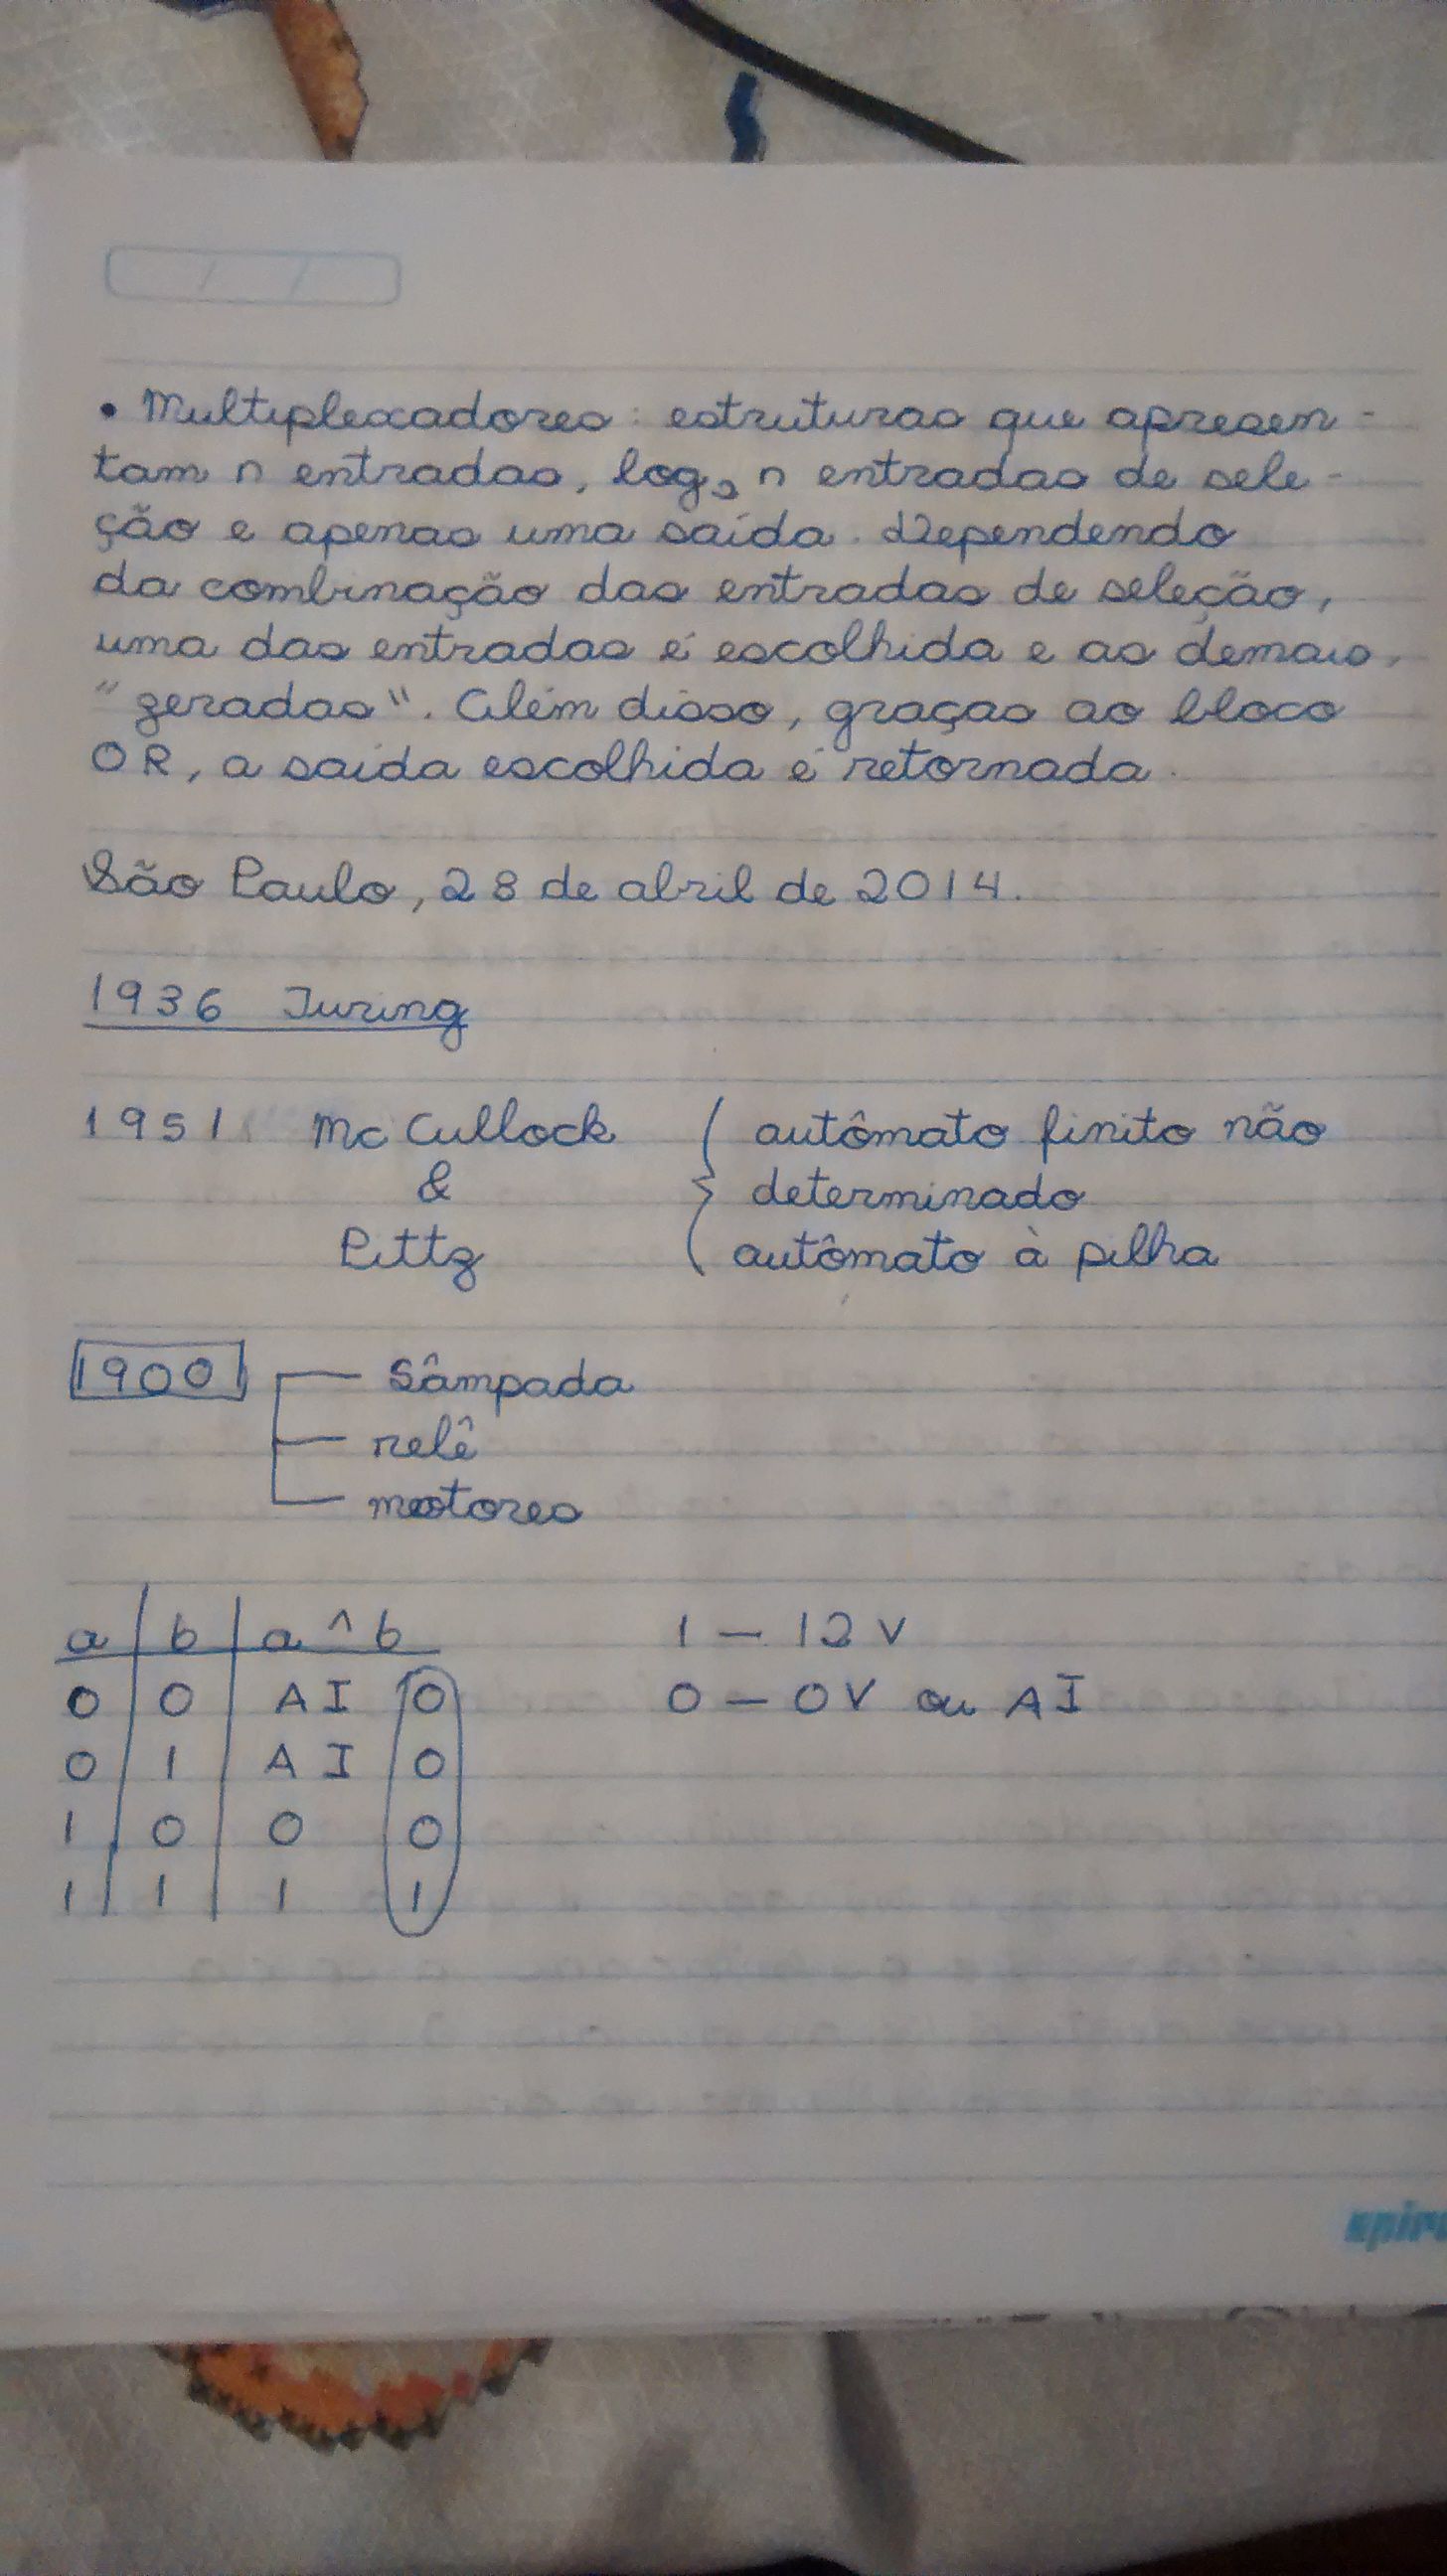 • Multiplexadores: estruturas que apresen-
tam n entradas, log₂ n entradas de sele-
ção e apenas uma saída. Dependendo
da combinação das entradas de seleção,
uma das entradas é escolhida e as demais,
"zeradas". Além disso, graças ao bloco
OR, a saída escolhida é retornada.
São Paulo, 28 de abril de 2014.
1936 Turing
1951 Mc Cullock { autômato finito não
& determinado
Pittz autômato à pilha
1900 Lâmpada
relê
motores
a b a ^ b 1 – 12 V
0 0 AI 0 0 – 0V ou AI
0 1 AI 0
1 0 0 0
1 1 1 1